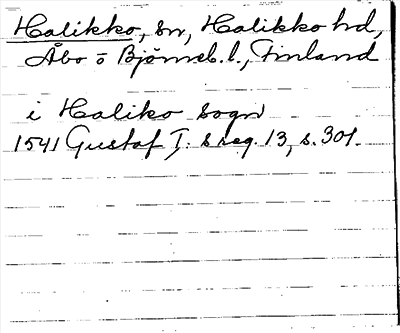 Halikko, sn, Halikko hd,
Åbo o Björneb. l., Finland
i Haliko sogn
1541 Gustaf I:s reg. 13, s. 301.